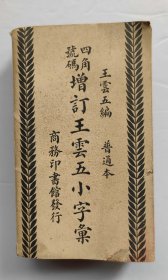 王雲五編 普通本
四角號碼 增訂王雲五小字彙
商務印書館發行